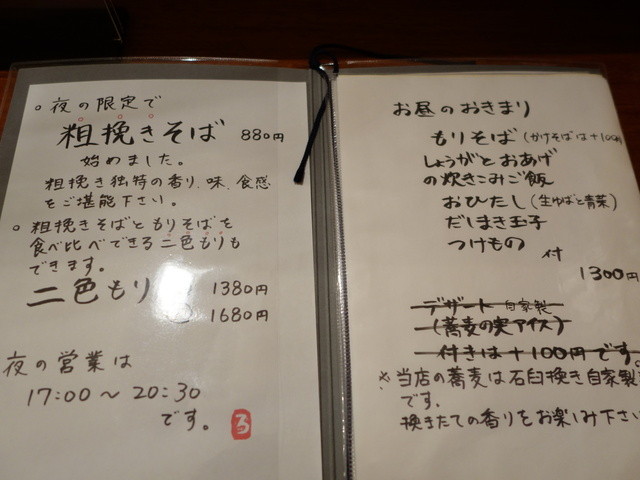 ○夜の限定で
粗挽きそば 880円
始めました。
粗挽き独特の香り、味、食感
をご堪能下さい。
○粗挽きそばともりそばを
食べ比べできる二色もりも
できます。
二色もり 1380円
1680円
夜の営業は
17:00～20:30
です。
お昼のおきまり
もりそば(かけそばは+100
しょうがとおあげ
の炊きこみご飯
おひたし(生ゆばと青菜)
だしまき玉子
つけもの
付
1300円
デザート 自家製
(蕎麦の実アイス)
付きは+100円です。
※当店の蕎麦は石臼挽き自家製
です。
挽きたての香りをお楽しみ下さい